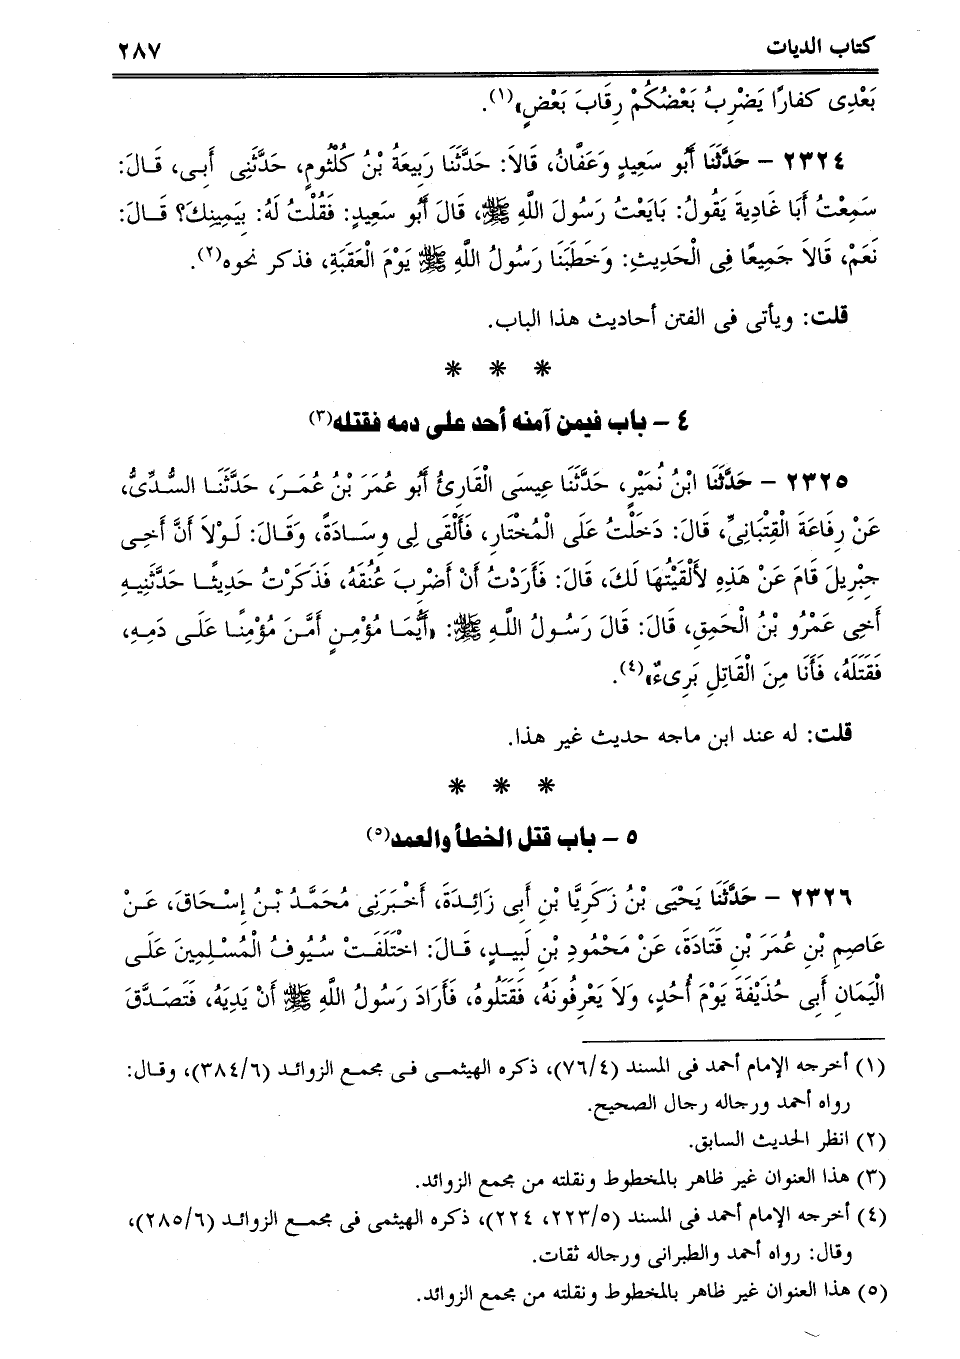 كتاب الديات
٢٨٧
بَعْدِى كفارًا يَضْرِبُ بَعْضُكُمْ رِقَابَ بَعْضٍ»(١).
٢٣٢٤ – حَدَّثَنَا أَبُو سَعِيدٍ وَعَفَّانُ، قَالَا: حَدَّثَنَا رَبِيعَةُ بْنُ كُلْثُومٍ، حَدَّثَنِى أَبِى، قَالَ:
سَمِعْتُ أَبَا غَادِيةَ يَقُولُ: بَايَعْتُ رَسُولَ اللَّهِ ﷺ، قَالَ أَبُو سَعِيدٍ: فَقُلْتُ لَهُ: بِيَمِينِكَ؟ قَالَ:
نَعَمْ، قَالَا جَمِيعًا فِى الْحَدِيثِ: وَخَطَبَنَا رَسُولُ اللَّهِ ﷺ يَوْمَ الْعَقَبَةِ، فذكر نحوه(٢).
قلت: ويأتى فى الفتن أحاديث هذا الباب.
* * *
٤ – باب فيمن آمنه أحد على دمه فقتله(٣)
٢٣٢٥ – حَدَّثَنَا ابْنُ نُمَيْرٍ، حَدَّثَنَا عِيسَى الْقَارِئُ أَبُو عُمَرَ بْنُ عُمَرَ، حَدَّثَنَا السُّدِّىُّ،
عَنْ رِفَاعَةَ الْقِتْبَانِىِّ، قَالَ: دَخَلْتُ عَلَى الْمُخْتَارِ، فَأَلْقَى لِى وِسَادَةً، وَقَالَ: لَوْلَا أَنَّ أَخِى
جِبْرِيلَ قَامَ عَنْ هَذِهِ لأَلْقَيْتُهَا لَكَ، قَالَ: فَأَرَدْتُ أَنْ أَضْرِبَ عُنُقَهُ، فَذَكَرْتُ حَدِيثًا حَدَّثَنِيهِ
أَخِى عَمْرُو بْنُ الْحَمِقِ، قَالَ: قَالَ رَسُولُ اللَّهِ ﷺ: «أَيُّمَا مُؤْمِنٍ أَمَّنَ مُؤْمِنًا عَلَى دَمِهِ،
فَقَتَلَهُ، فَأَنَا مِنَ الْقَاتِلِ بَرِىءٌ»(٤).
قلت: له عند ابن ماجه حديث غير هذا.
* * *
٥ – باب قتل الخطأ والعمد(٥)
٢٣٢٦ – حَدَّثَنَا يَحْيَى بْنُ زَكَرِيَّا بْنِ أَبِى زَائِدَةَ، أَخْبَرَنِى مُحَمَّدُ بْنُ إِسْحَاقَ، عَنْ
عَاصِمِ بْنِ عُمَرَ بْنِ قَتَادَةَ، عَنْ مَحْمُودِ بْنِ لَبِيدٍ، قَالَ: اخْتَلَفَتْ سُيُوفُ الْمُسْلِمِينَ عَلَى
الْيَمَانِ أَبِى حُذَيْفَةَ يَوْمَ أُحُدٍ، وَلَا يَعْرِفُونَهُ، فَقَتَلُوهُ، فَأَرَادَ رَسُولُ اللَّهِ ﷺ أَنْ يَدِيَهُ، فَتَصَدَّقَ
(١) أخرجه الإمام أحمد فى المسند (٧٦/٤)، ذكره الهيثمى فى مجمع الزوائد (٣٨٤/٦)، وقال:
رواه أحمد ورجاله رجال الصحيح.
(٢) انظر الحديث السابق.
(٣) هذا العنوان غير ظاهر بالمخطوط ونقلته من مجمع الزوائد.
(٤) أخرجه الإمام أحمد فى المسند (٢٢٣/٥، ٢٢٤)، ذكره الهيثمى فى مجمع الزوائد (٢٨٥/٦)،
وقال: رواه أحمد والطبرانى ورجاله ثقات.
(٥) هذا العنوان غير ظاهر بالمخطوط ونقلته من مجمع الزوائد.